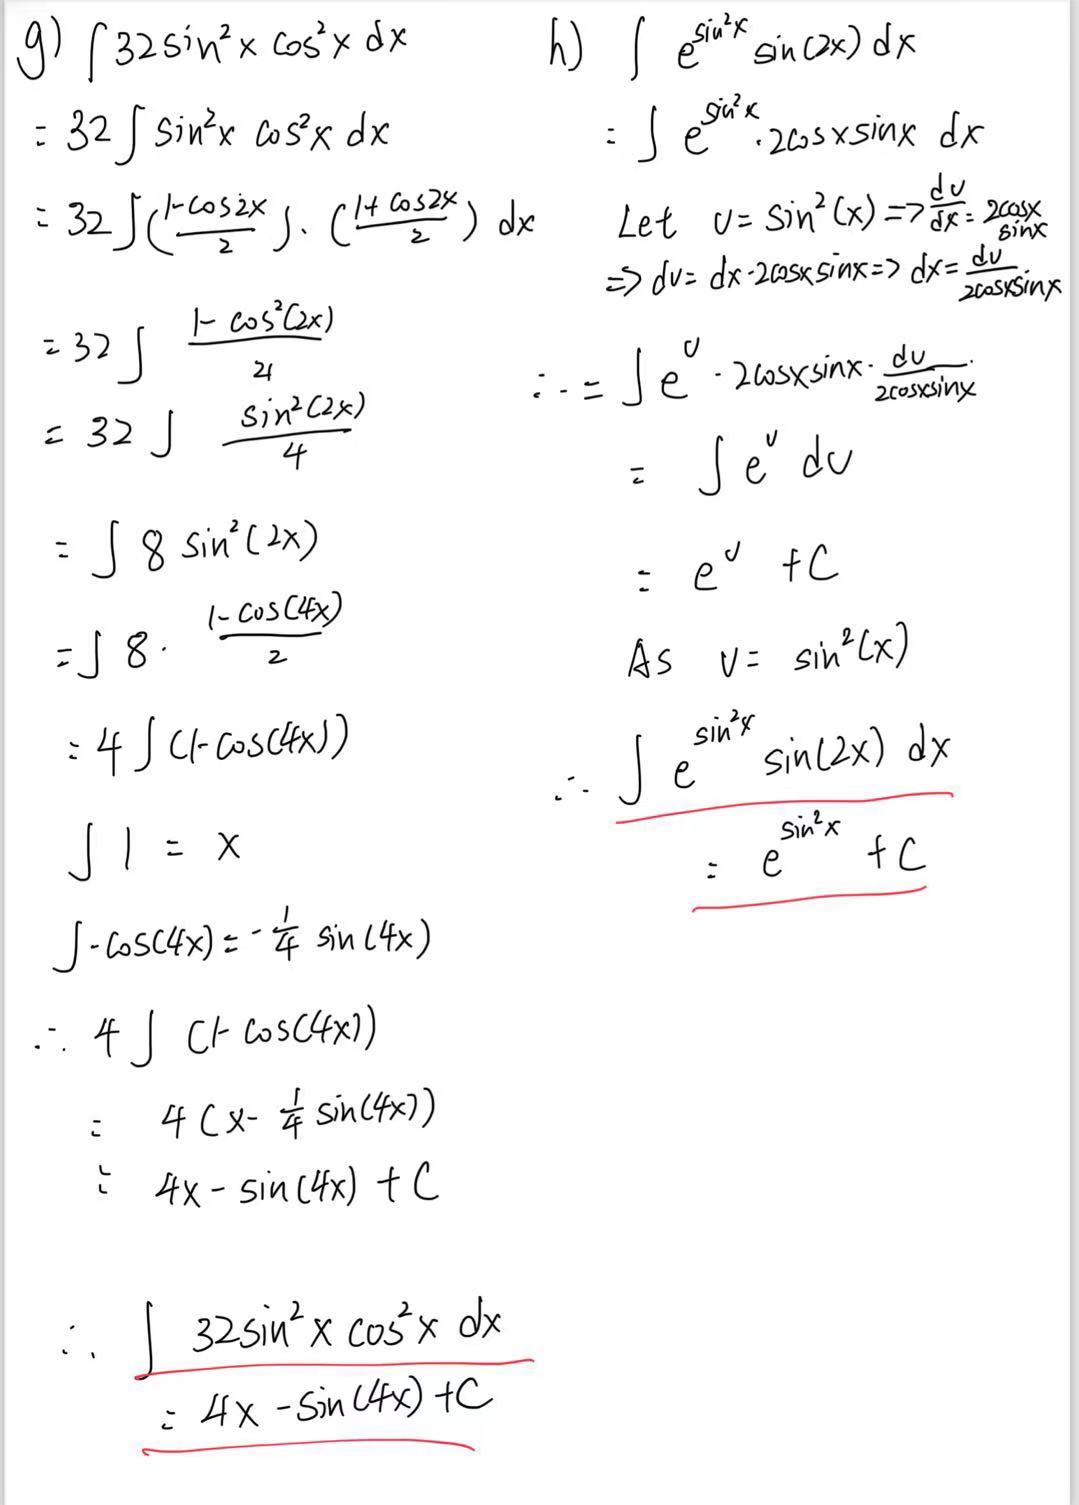 g) ∫ 32 sin²x cos²x dx
= 32 ∫ sin²x cos²x dx
= 32 ∫ (1-cos2x/2) · (1+cos2x/2) dx
= 32 ∫ 1-cos²(2x)/4
= 32 ∫ sin²(2x)/4
= ∫ 8 sin²(2x)
= ∫ 8 · 1-cos(4x)/2
= 4 ∫ (1-cos(4x))
∫ 1 = x
∫ -cos(4x) = -1/4 sin(4x)
∴ 4 ∫ (1-cos(4x))
= 4 (x - 1/4 sin(4x))
= 4x - sin(4x) + C
∴ ∫ 32 sin²x cos²x dx
= 4x - sin(4x) + C
h) ∫ e^sin²x sin(2x) dx
= ∫ e^sin²x · 2cosxsinx dx
Let u = sin²(x) => du/dx = 2cosx sinx
=> du = dx · 2cosxsinx => dx = du/2cosxsinx
∴ = ∫ e^u · 2cosxsinx · du/2cosxsinx
= ∫ e^u du
= e^u + C
As u = sin²(x)
∴ ∫ e^sin²x sin(2x) dx
= e^sin²x + C